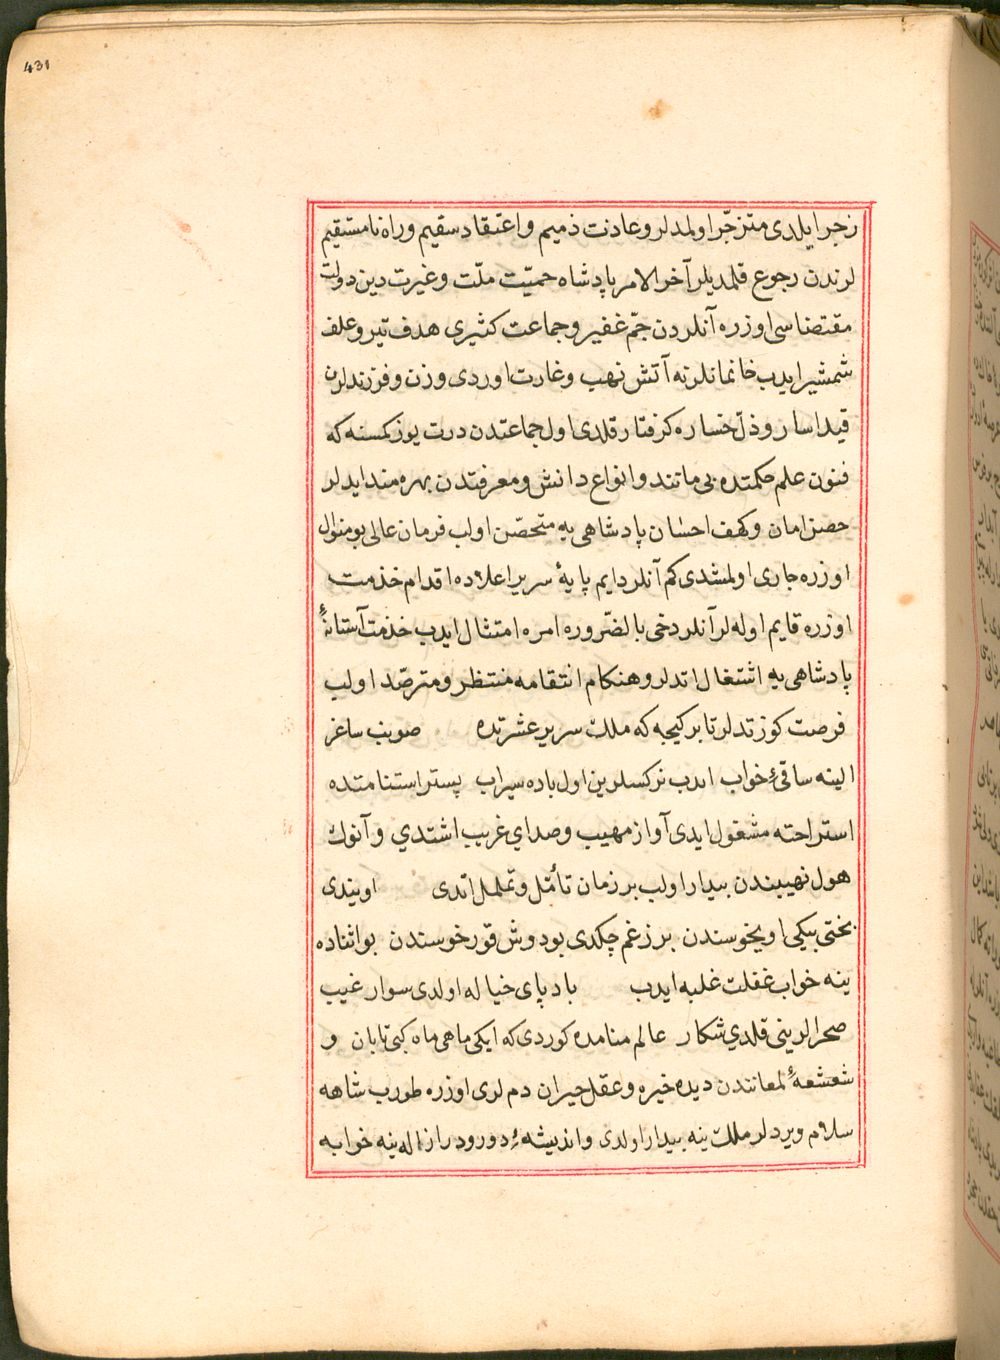 431
زجر ایلدی متزجّر اولمدلر و عادت ذمیم و اعتقاد سقیم و راه نامستقیم
لرندن رجوع قلمدیلر آخر الامر پادشاه حمیّت ملّت و غیرت دین دولت
مقتضاسی اوزره آنلردن جمّ غفیر و جماعت کثیری هدف تیر و علف
شمشیر ایدب خانمانلرنه آتش نهب و غارت اوردی و زن و فرزندلرن
قید اسار و ذلّ خساره کرفتار قلدی اول جماعتدن درت یوز کمسنه که
فنون علم حکمتده بی مانند و انواع دانش و معرفتدن بهره مند ایدلر
حصن امان و کهف احسان پادشاهی یه متحصّن اولب فرمان عالی بو منوال
اوزره جاری اولمشدی کم آنلر دایم پایهٔ سریر اعلاده اقدام خذمت
اوزره قایم اوله لر آنلر دخی بالضّروره امره امتثال ایدب خذمت آستانهٔ
پادشاهی یه اشتغال اتدلر و هنکام انتقامه منتظر و مترصّد اولب
فرصت کوزتدلر تا بر کیجه که ملک سریر عشرتده صونب ساغز
الینه ساقیٔ خواب ایدب نرکسلرین اول باده سیراب پستر استنامتده
استراحته مشغول ایدی آواز مهیب و صدای غریب اشتدی و آنوک
هول نهیبندن بیدار اولب بر زمان تأمّل و تململ اتدی اویندی
بختی بیکی اویخوسندن برز غم چکدی بو دوش قورخوسندن بو اثناده
ینه خواب غفلت غلبه ایدب بادپای خیاله اولدی سوار غیب
صحرالرینی قلدی شکار عالم منامده کوردی که ایکی ماهی ماه کبی تابان و
شعشعهٔ لمعانندن دیده خیره و عقل حیران دم لری اوزره طورب شاهه
سلام ویردلر ملک ینه بیدار اولدی و اندیشهٔ دور و دراز اله ینه خوابه